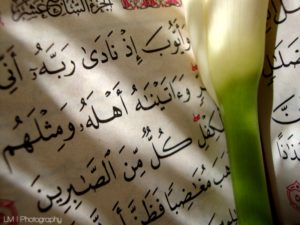 الجزء السابع عشر
وَأَيُّوبَ إِذْ نَادَىٰ رَبَّهُۥٓ أَنِّى
وَءَاتَيْنَٰهُ أَهْلَهُۥ وَمِثْلَهُم
كُلٌّ مِّنَ ٱلصَّٰبِرِينَ
مُغَٰضِبًا فَظَنَّ أَن
LM | Photography